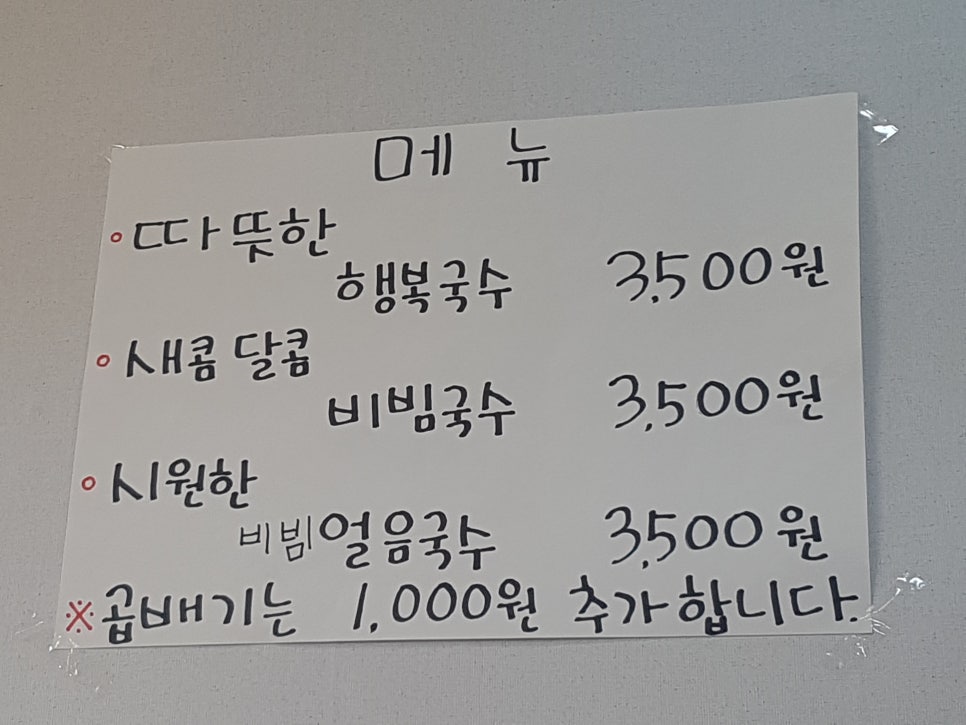 메뉴
따뜻한
행복국수 3,500원
새콤달콤
비빔국수 3,500원
시원한
비빔얼음국수 3,500원
※곱배기는 1,000원 추가합니다.